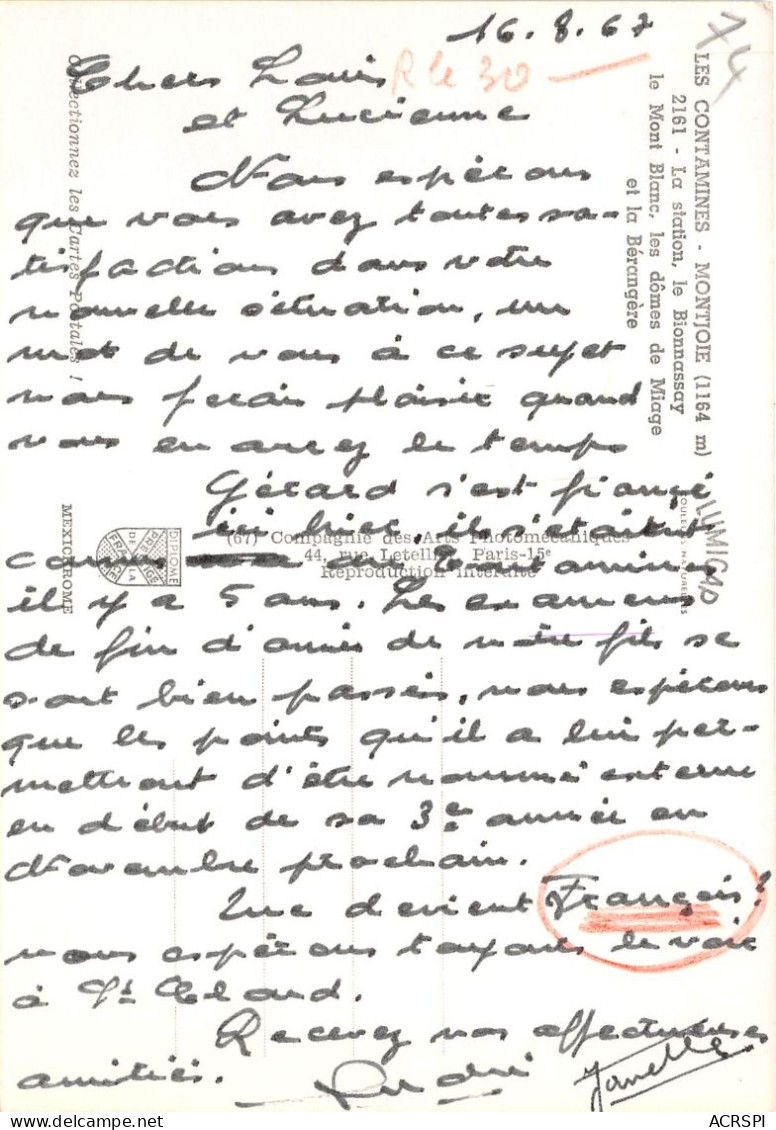 16.8.67
74
Chers Louis
R le 30
et Lucienne
Nous espérons
que vous avez toutes sa-
tisfactions dans votre
nouvelle situation, un
mot de vous à ce sujet
nous ferait plaisir quand
vous en aurez le temps
Gérard s'est fiancé
ici hier, ils s'étaient
connus aux Contamines
il y a 5 ans. Les examens
de fin d'année de notre fils se
sont bien passés, nous espérons
que les points qu'il a lui per-
mettront d'être nommé externe
en début de sa 3e année en
Novembre prochain.
Que devient François?
nous espérons toujours le voir
à St
Recevez nos affectueuses
amitiés.
André
LES CONTAMINES - MONTJOIE (1164 m)
2161 - La station, le Bionnassay
le Mont Blanc, les dômes de Miage
et la Bérangère
Collectionnez les Cartes Postales !
MEXICHROME
DIPLOME
PRESTIGE
DE LA
FRANCE
(67) Compagnie des Arts Photomécaniques
44, rue Letellier Paris-15e
Reproduction interdite
COULEURS NATURELLES
LUMICAP
ACRSPI